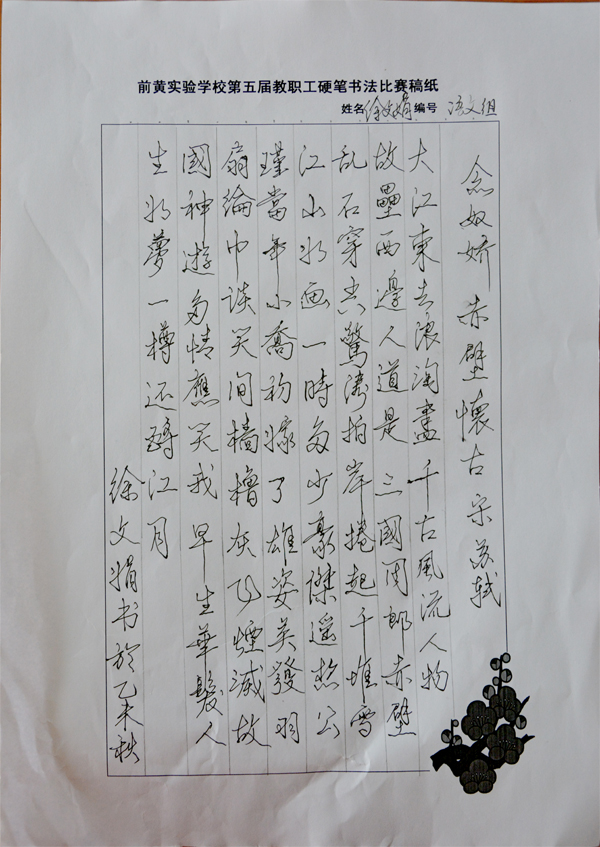 前黄实验学校第五届教职工硬笔书法比赛稿纸
姓名 徐文娟 编号 语文组
念奴娇 赤壁懷古 宋 苏轼
大江東去浪淘盡千古風流人物
故壘西邊人道是三國周郎赤壁
乱石穿空驚濤拍岸捲起千堆雪
江山如画一時多少豪傑遥想公
瑾當年小喬初嫁了雄姿英發羽
扇綸巾談笑间檣櫓灰飞煙滅故
國神遊多情應笑我早生華髮人
生如夢一樽还酹江月
徐文娟书於乙未秋